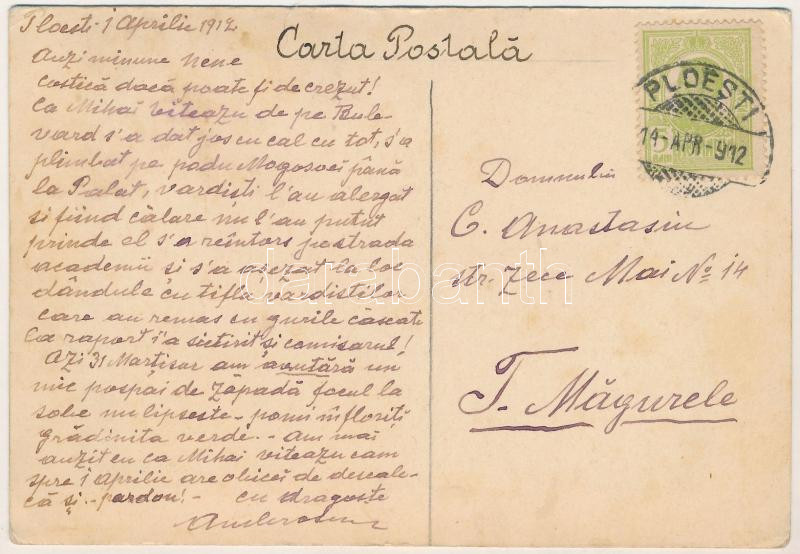 Ploesti 1 Aprilie 1912
Carta Postală
Auzi minune nene
Costică dacă poate fi de crezut!
Ca Mihai Viteazu de pe Bule-
vard s'a dat jos cu cal cu tot, s'a
plimbat pe podu Mogosoei până
la Palat, vardiști l'au alergat
si fiind călare nu l'au putut
prinde el s'a reîntors pe strada
academii și s'a așezat la loc
dândule cu tifla vardistilor
care au remas cu gurile căscate
Ca raport i'a sictirit si comisarul!
Azi 31 Martisor am avutără un
mic pospai de zăpadă focul la
sobe nu lipseste - pomi înfloriți
grădinița verde. - Am mai
auzit eu ca Mihai viteazu cam
spre 1 Aprilie are obicei de descale-
că și .- pardon! - cu dragoste
PLOEȘTI
14-APR-912
5
Domnului
C. Anastasiu
str. Zece Mai No 14
T. Măgurele
darabanth